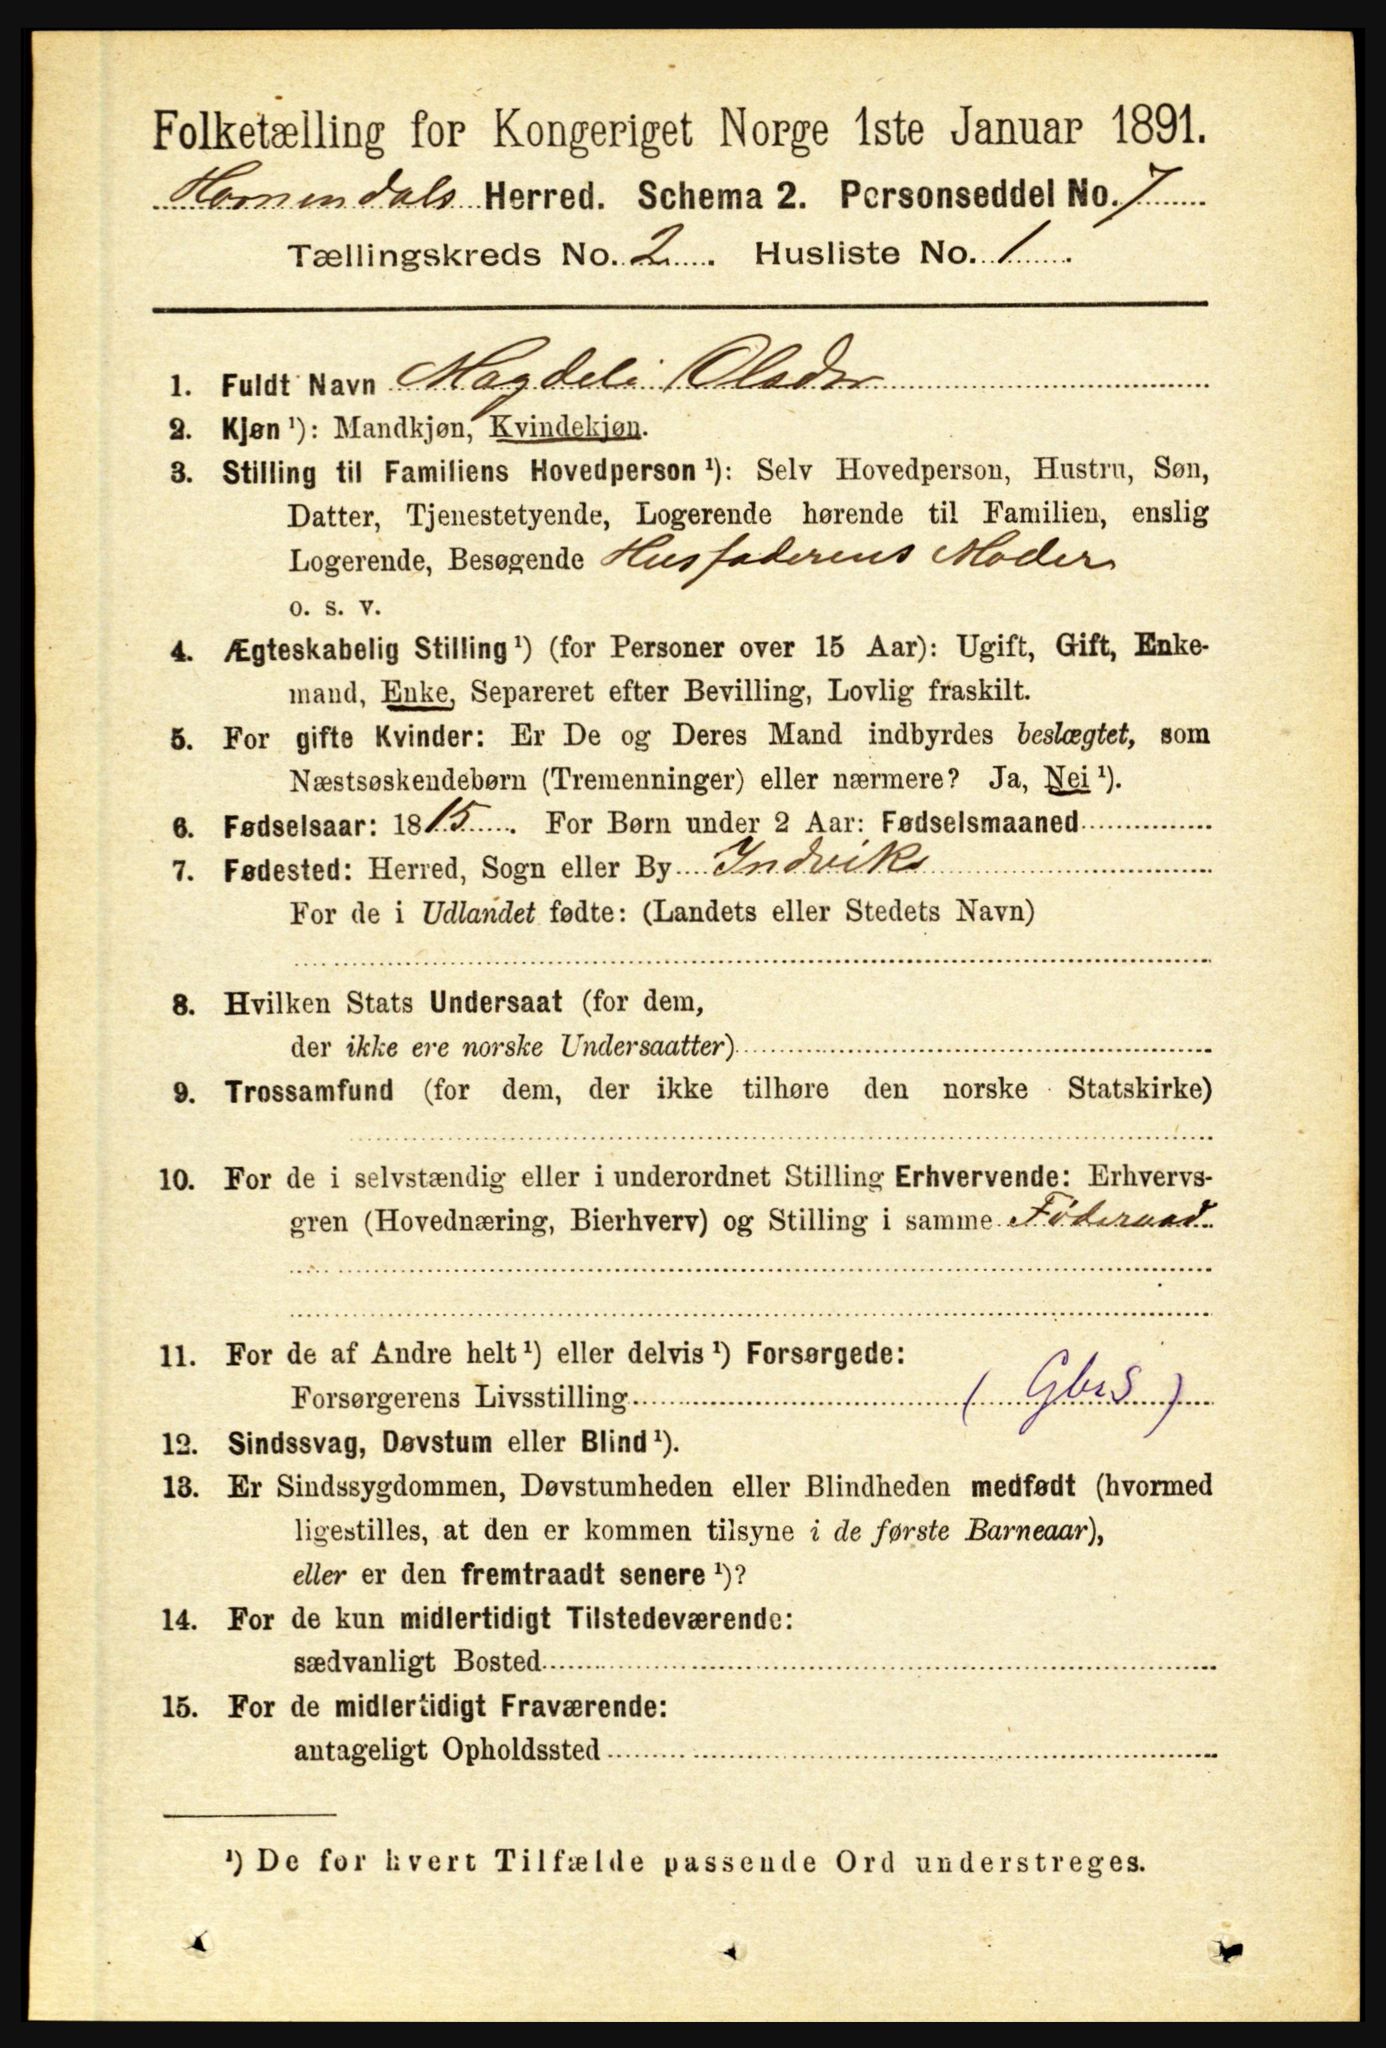 Folketælling for Kongeriget Norge 1ste Januar 1891.
Hornindals Herred. Schema 2. Personseddel No. 7
Tællingskreds No. 2. Husliste No. 1
1. Fuldt Navn Magdeli Olsdr
2. Kjøn ¹): Mandkjøn, Kvindekjøn.
3. Stilling til Familiens Hovedperson ¹): Selv Hovedperson, Hustru, Søn,
Datter, Tjenestetyende, Logerende hørende til Familien, enslig
Logerende, Besøgende Husfaderens Moder
o. s. v.
4. Ægteskabelig Stilling ¹) (for Personer over 15 Aar): Ugift, Gift, Enke-
mand, Enke, Separeret efter Bevilling, Lovlig fraskilt.
5. For gifte Kvinder: Er De og Deres Mand indbyrdes beslægtet, som
Næstsøskendebørn (Tremenninger) eller nærmere? Ja, Nei ¹).
6. Fødselsaar: 1815. For Børn under 2 Aar: Fødselsmaaned
7. Fødested: Herred, Sogn eller By Indvik
For de i Udlandet fødte: (Landets eller Stedets Navn)
8. Hvilken Stats Undersaat (for dem,
der ikke ere norske Undersaatter)
9. Trossamfund (for dem, der ikke tilhøre den norske Statskirke)
10. For de i selvstændig eller i underordnet Stilling Erhvervende: Erhvervs-
gren (Hovednæring, Bierhverv) og Stilling i samme Føderaad
11. For de af Andre helt ¹) eller delvis ¹) Forsørgede:
Forsørgerens Livsstilling (GbrS)
12. Sindssvag, Døvstum eller Blind ¹).
13. Er Sindssygdommen, Døvstumheden eller Blindheden medfødt (hvormed
ligestilles, at den er kommen tilsyne i de første Barneaar),
eller er den fremtraadt senere ¹)?
14. For de kun midlertidigt Tilstedeværende:
sædvanligt Bosted
15. For de midlertidigt Fraværende:
antageligt Opholdssted
¹) De for hvert Tilfælde passende Ord understreges.